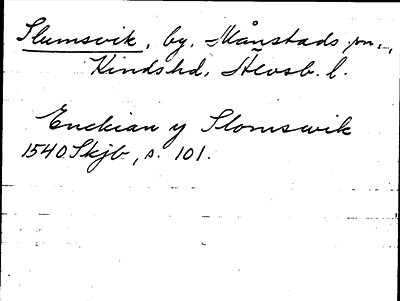 Slumsvik, by, Månstads sn.,
Kindshd, Älvsb. l.
Enckian y Slomswik
1540 Skjb, s. 101.